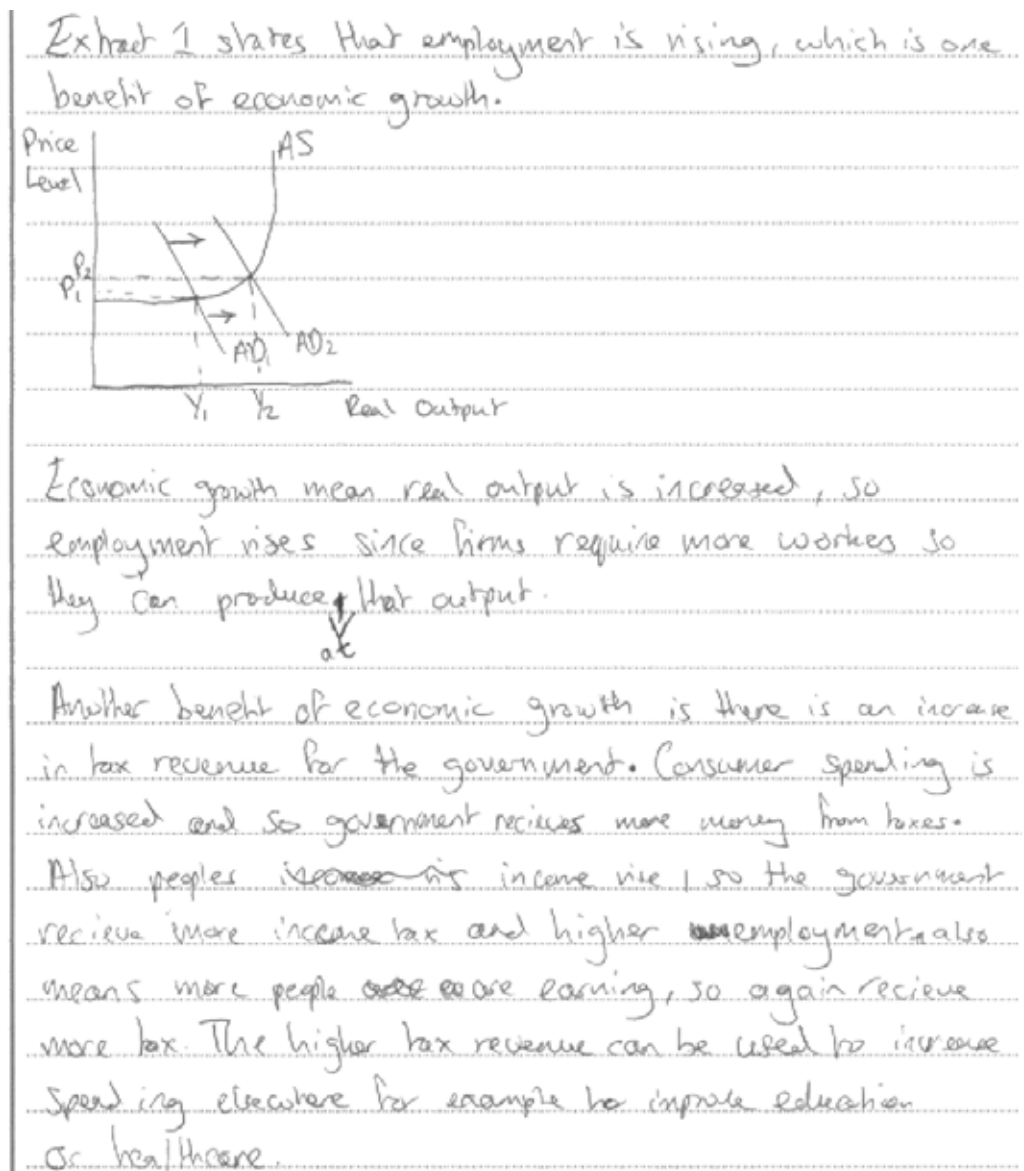 Extract 1 states that employment is rising, which is one
benefit of economic growth.
Price
Level
AS
P2
P1
AD1
AD2
Y1 Y2 Real Output
Economic growth mean real output is increased, so
employment rises since firms require more workers so
they can produce that output.
at
Another benefit of economic growth is there is an increase
in tax revenue for the government. Consumer spending is
increased and so government recieves more money from taxes.
Also peoples income rise, so the government
recieve more income tax and higher employment also
means more people are earning, so again recieve
more tax. The higher tax revenue can be used to increase
spending elsewhere for example to improve education
or healthcare.